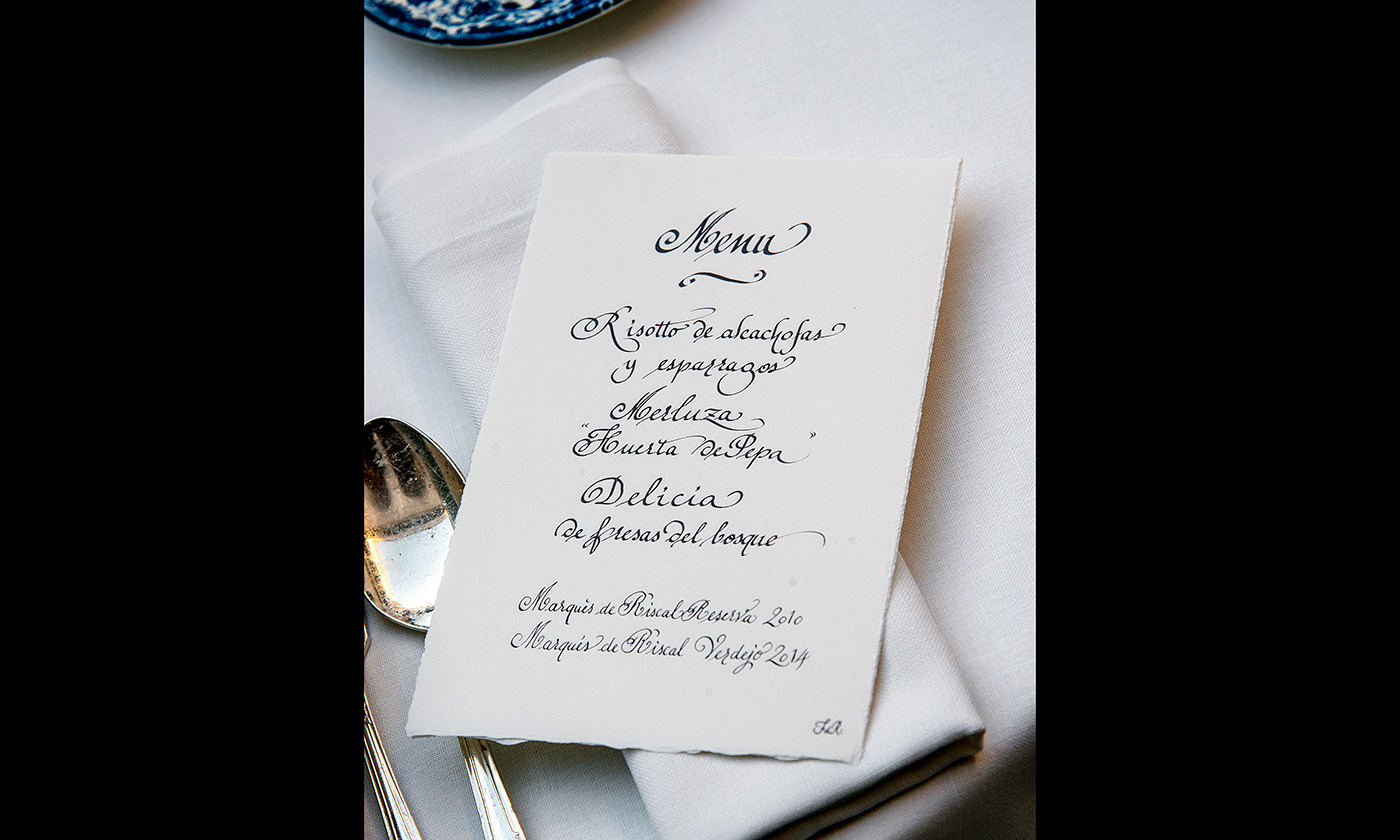 Menu
Risotto de alcachofas
y esparragos
Merluza
"Huerta de Pepa"
Delicia
de fresas del bosque
Marqués de Riscal Reserva 2010
Marqués de Riscal Verdejo 2014